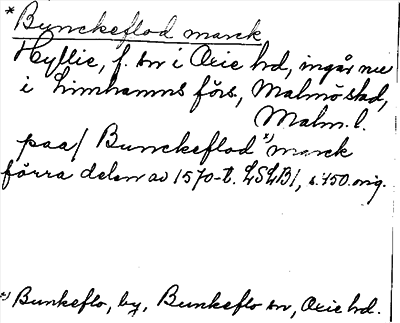 * Bunckeflod marck
Hyllie, f. sn i Oxie hd, ingår nu
i Limhamns förs, Malmö stad,
Malm. l.
paa/ Bunckeflod *) marck
förra delen av 1570-t. LSLB1, s. 150. orig.
*) Bunkeflo, by, Bunkeflo sn, Oxie hd.